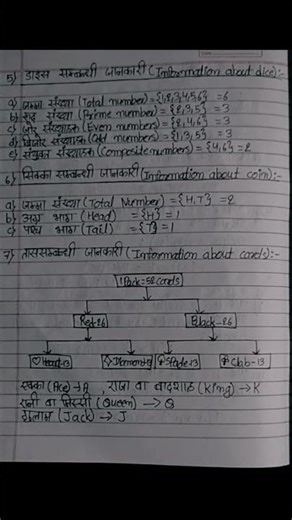 5) डाइस सम्बन्धी जानकारी (Information about dice):-
a) जम्मा संख्या (Total number) = {1,2,3,4,5,6} = 6
b) रूढ संख्या (Prime number) = {2,3,5} = 3
c) जोर संख्याहरू (Even numbers) = {2,4,6} = 3
d) बिजोर संख्याहरू (Odd numbers) = {1,3,5} = 3
e) संयुक्त संख्याहरू (Composite numbers) = {4,6} = 2
6) सिक्का सम्बन्धी जानकारी (Information about coin):-
a) जम्मा संख्या (Total Number) = {H,T} = 2
b) अग्र भाग (Head) = {H} = 1
c) पाश्व भाग (Tail) = {T} = 1
7) तास सम्बन्धी जानकारी (Information about cards):-
1 Pack = 52 cards
Red-26 Black-26
♡Heart-13 ◇Diamond-13 ♤Spade-13 ♧Club-13
एक्का (Ace) → A, राजा वा बादशाह (King) → K
रानी वा मिस्सी (Queen) → Q
गुलाम (Jack) → J